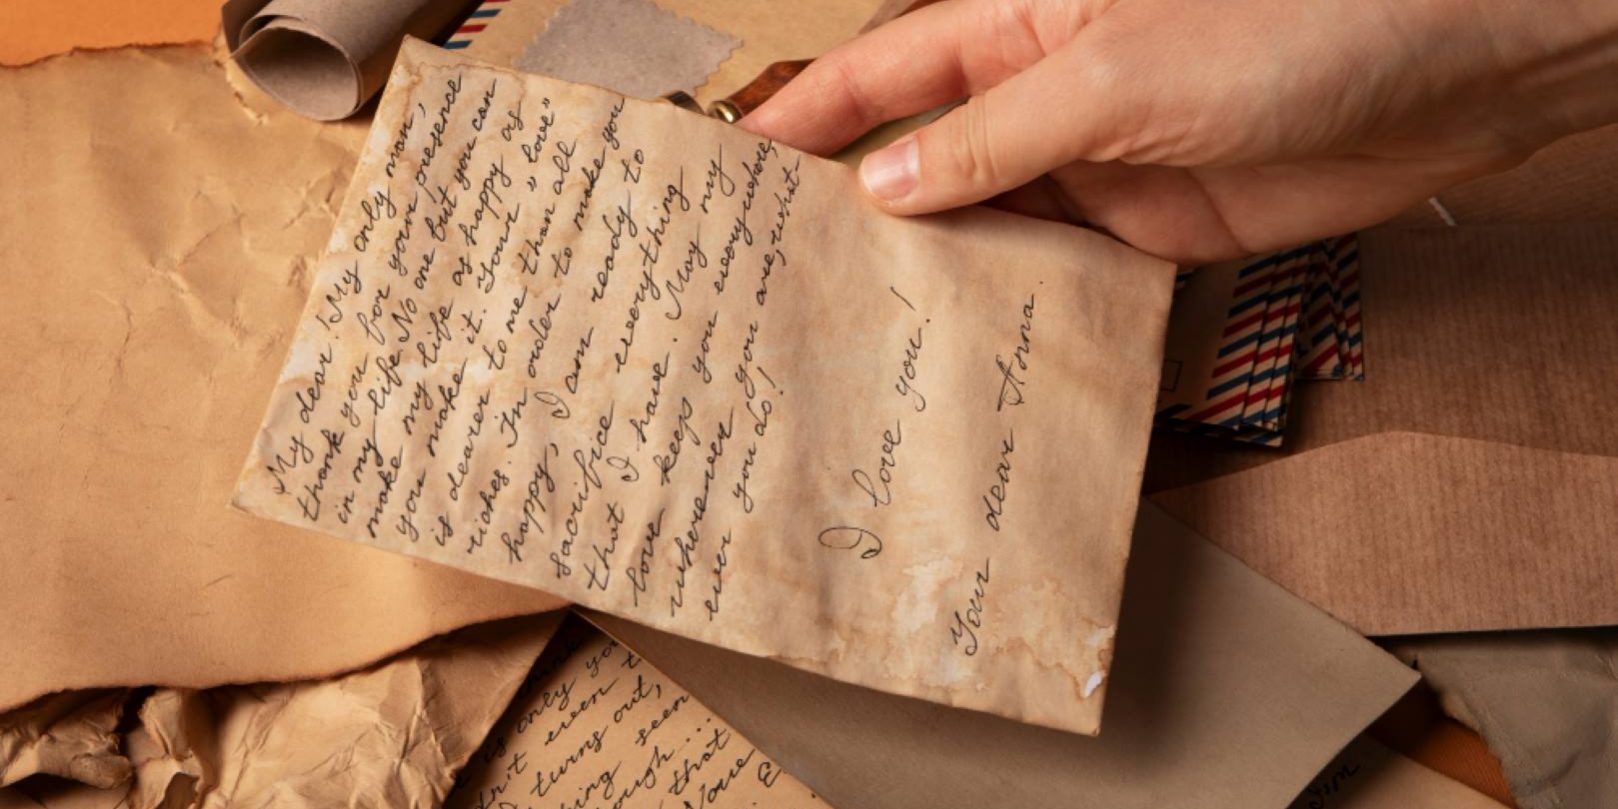 My dear! My only man,
thank you for your presence
in my life. No one but you can
make my life as happy as
you make it. Your "love"
is dearer to me than all
riches. In order to make you
happy, I am ready to
sacrifice everything
that I have. May my
love keeps you everywhere,
wherever you are, what-
ever you do!
I love you!
Your dear Anna.
is only you
turns out,
seen
that